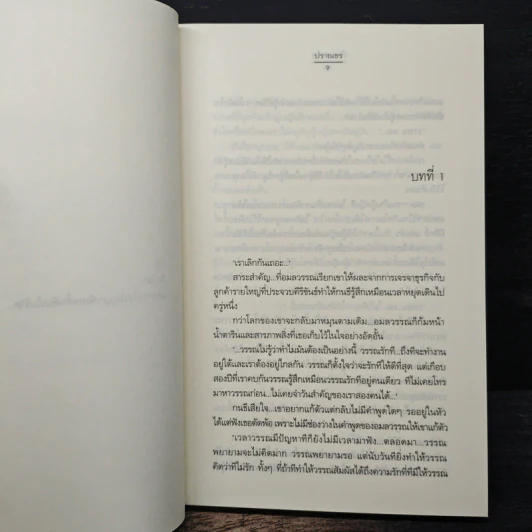 ปราณธร
9
บทที่ 1
'เราเลิกกันเถอะ...'
สาระสำคัญ...ที่อมลวรรณเรียกเขาให้ผละจากการเจรจาธุรกิจกับ
ลูกค้ารายใหญ่ที่ประจวบคีรีขันธ์ทำให้กนธีรู้สึกเหมือนเวลาหยุดเดินไป
ครู่หนึ่ง
กว่าโลกของเขาจะกลับมาหมุนตามเดิม...อมลวรรณก็ก้มหน้า
น้ำตารินและสารภาพสิ่งที่เธอเก็บไว้ในใจอย่างอัดอั้น
'...วรรณไม่รู้ว่าทำไมมันต้องเป็นอย่างนี้ วรรณรักที่...ถึงที่จะทำงาน
อยู่ใต้และเราต้องอยู่ไกลกัน วรรณก็ตั้งใจว่าจะรักที่ให้ดีที่สุด แต่เกือบ
สองปีที่เราคบกันวรรณรู้สึกเหมือนวรรณรักที่อยู่คนเดียว ที่ไม่เคยโทร
มาหาวรรณก่อน...ไม่เคยจำวันสำคัญของเราสองคนได้...'
กนธีเสียใจ...เขาอยากแก้ตัวแต่กลับไม่มีคำพูดใดๆ รออยู่ในหัว
ได้แต่ฟังเธอตัดพ้อ เพราะไม่มีช่องว่างในคำพูดของอมลวรรณให้เขาแก้ตัว
'เวลาวรรณมีปัญหาที่ก็ยังไม่มีเวลามาฟัง...ตลอดมา...วรรณ
พยายามจะไม่คิดมาก วรรณพยายามรอ แต่นับวันที่ยิ่งทำให้วรรณ
คิดว่าที่ไม่รัก ทั้งๆ ที่ถ้าที่ทำให้วรรณสัมผัสได้ถึงความรักที่ที่มีให้วรรณ